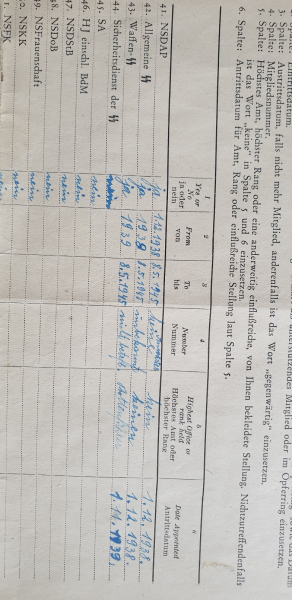 Antrittsdatum.
3. Spalte: Austrittsdatum, falls nicht mehr Mitglied, anderenfalls ist das Wort „gegenwärtig" einzusetzen.
4. Spalte: Mitgliedsnummer.
5. Spalte: Höchstes Amt, höchster Rang oder eine anderweitig einflußreiche, von Ihnen bekleidete Stellung. Nichtzutreffendenfalls
ist das Wort „keine" in Spalte 5 und 6 einzusetzen.
6. Spalte: Antrittsdatum für Amt, Rang oder einflußreiche Stellung laut Spalte 5.
Yes or No ja oder nein
2 From von
3 To bis
4 Number Nummer
5 Highest Office or rank held Höchstes Amt oder höchster Rang
6 Date Appointed Antrittsdatum
41. NSDAP ja 1.12.1938 8.5.1945 1.12.1938.
42. Allgemeine SS ja 1938 8.5.1945 unbekannt keinen 1.12.1938.
43. Waffen-SS ja 1939 8.5.1945 1.11.1939.
44. Sicherheitsdienst der SS nein
45. SA nein
46. HJ einschl. BdM nein
47. NSDStB nein
48. NSDoB nein
49. NSFrauenschaft nein
50. NSKK nein
51. NSFK nein